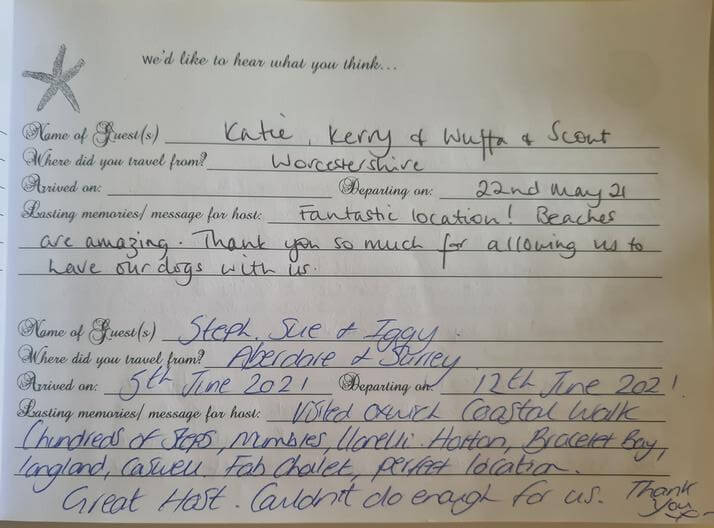 we'd like to hear what you think...
Name of Guest(s) Katie, Kerry & Wuffa & Scout
Where did you travel from? Worcestershire
Arrived on: Departing on: 22nd May 21
Lasting memories/ message for host: Fantastic location! Beaches
are amazing. Thank you so much for allowing us to
have our dogs with us.
Name of Guest(s) Steph, Sue & Iggy
Where did you travel from? Aberdare & Surrey
Arrived on: 5th June 2021 Departing on: 12th June 2021
Lasting memories/ message for host: Visited Oxwich Coastal Walk
(hundreds of steps, Mumbles, Llanelli. Horton, Bracelet Bay,
Langland, Caswell. Fab Chalet, perfect location.
Great Host. Couldn't do enough for us. Thank
you x